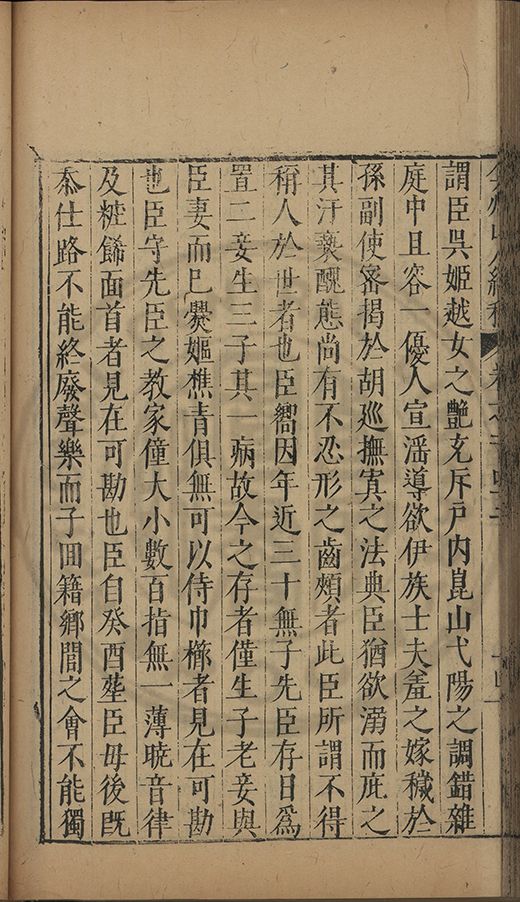 弇州山人續稿
謂臣吳姬越女之艷充斥戶內崑山弋陽之調錯雜
庭中且容一優人宣滛導欲伊族士夫羞之嫁穢於
孫副使密揭於胡巡撫寘之法典臣猶欲溺而庇之
其汗褻醜態尚有不忍形之齒頰者此臣所謂不得
稱人於世者也臣嚮因年近三十無子先臣存日為
置二妾生三子其一病故今之存者僅生子老妾與
臣妻而已爨嫗樵青俱無可以侍巾櫛者見在可勘
也臣守先臣之教家僮大小數百指無一薄曉音律
及粧餙面首者見在可勘也臣自癸酉塟臣母後旣
忝仕路不能終廢聲樂而子囬籍鄉閭之會不能獨